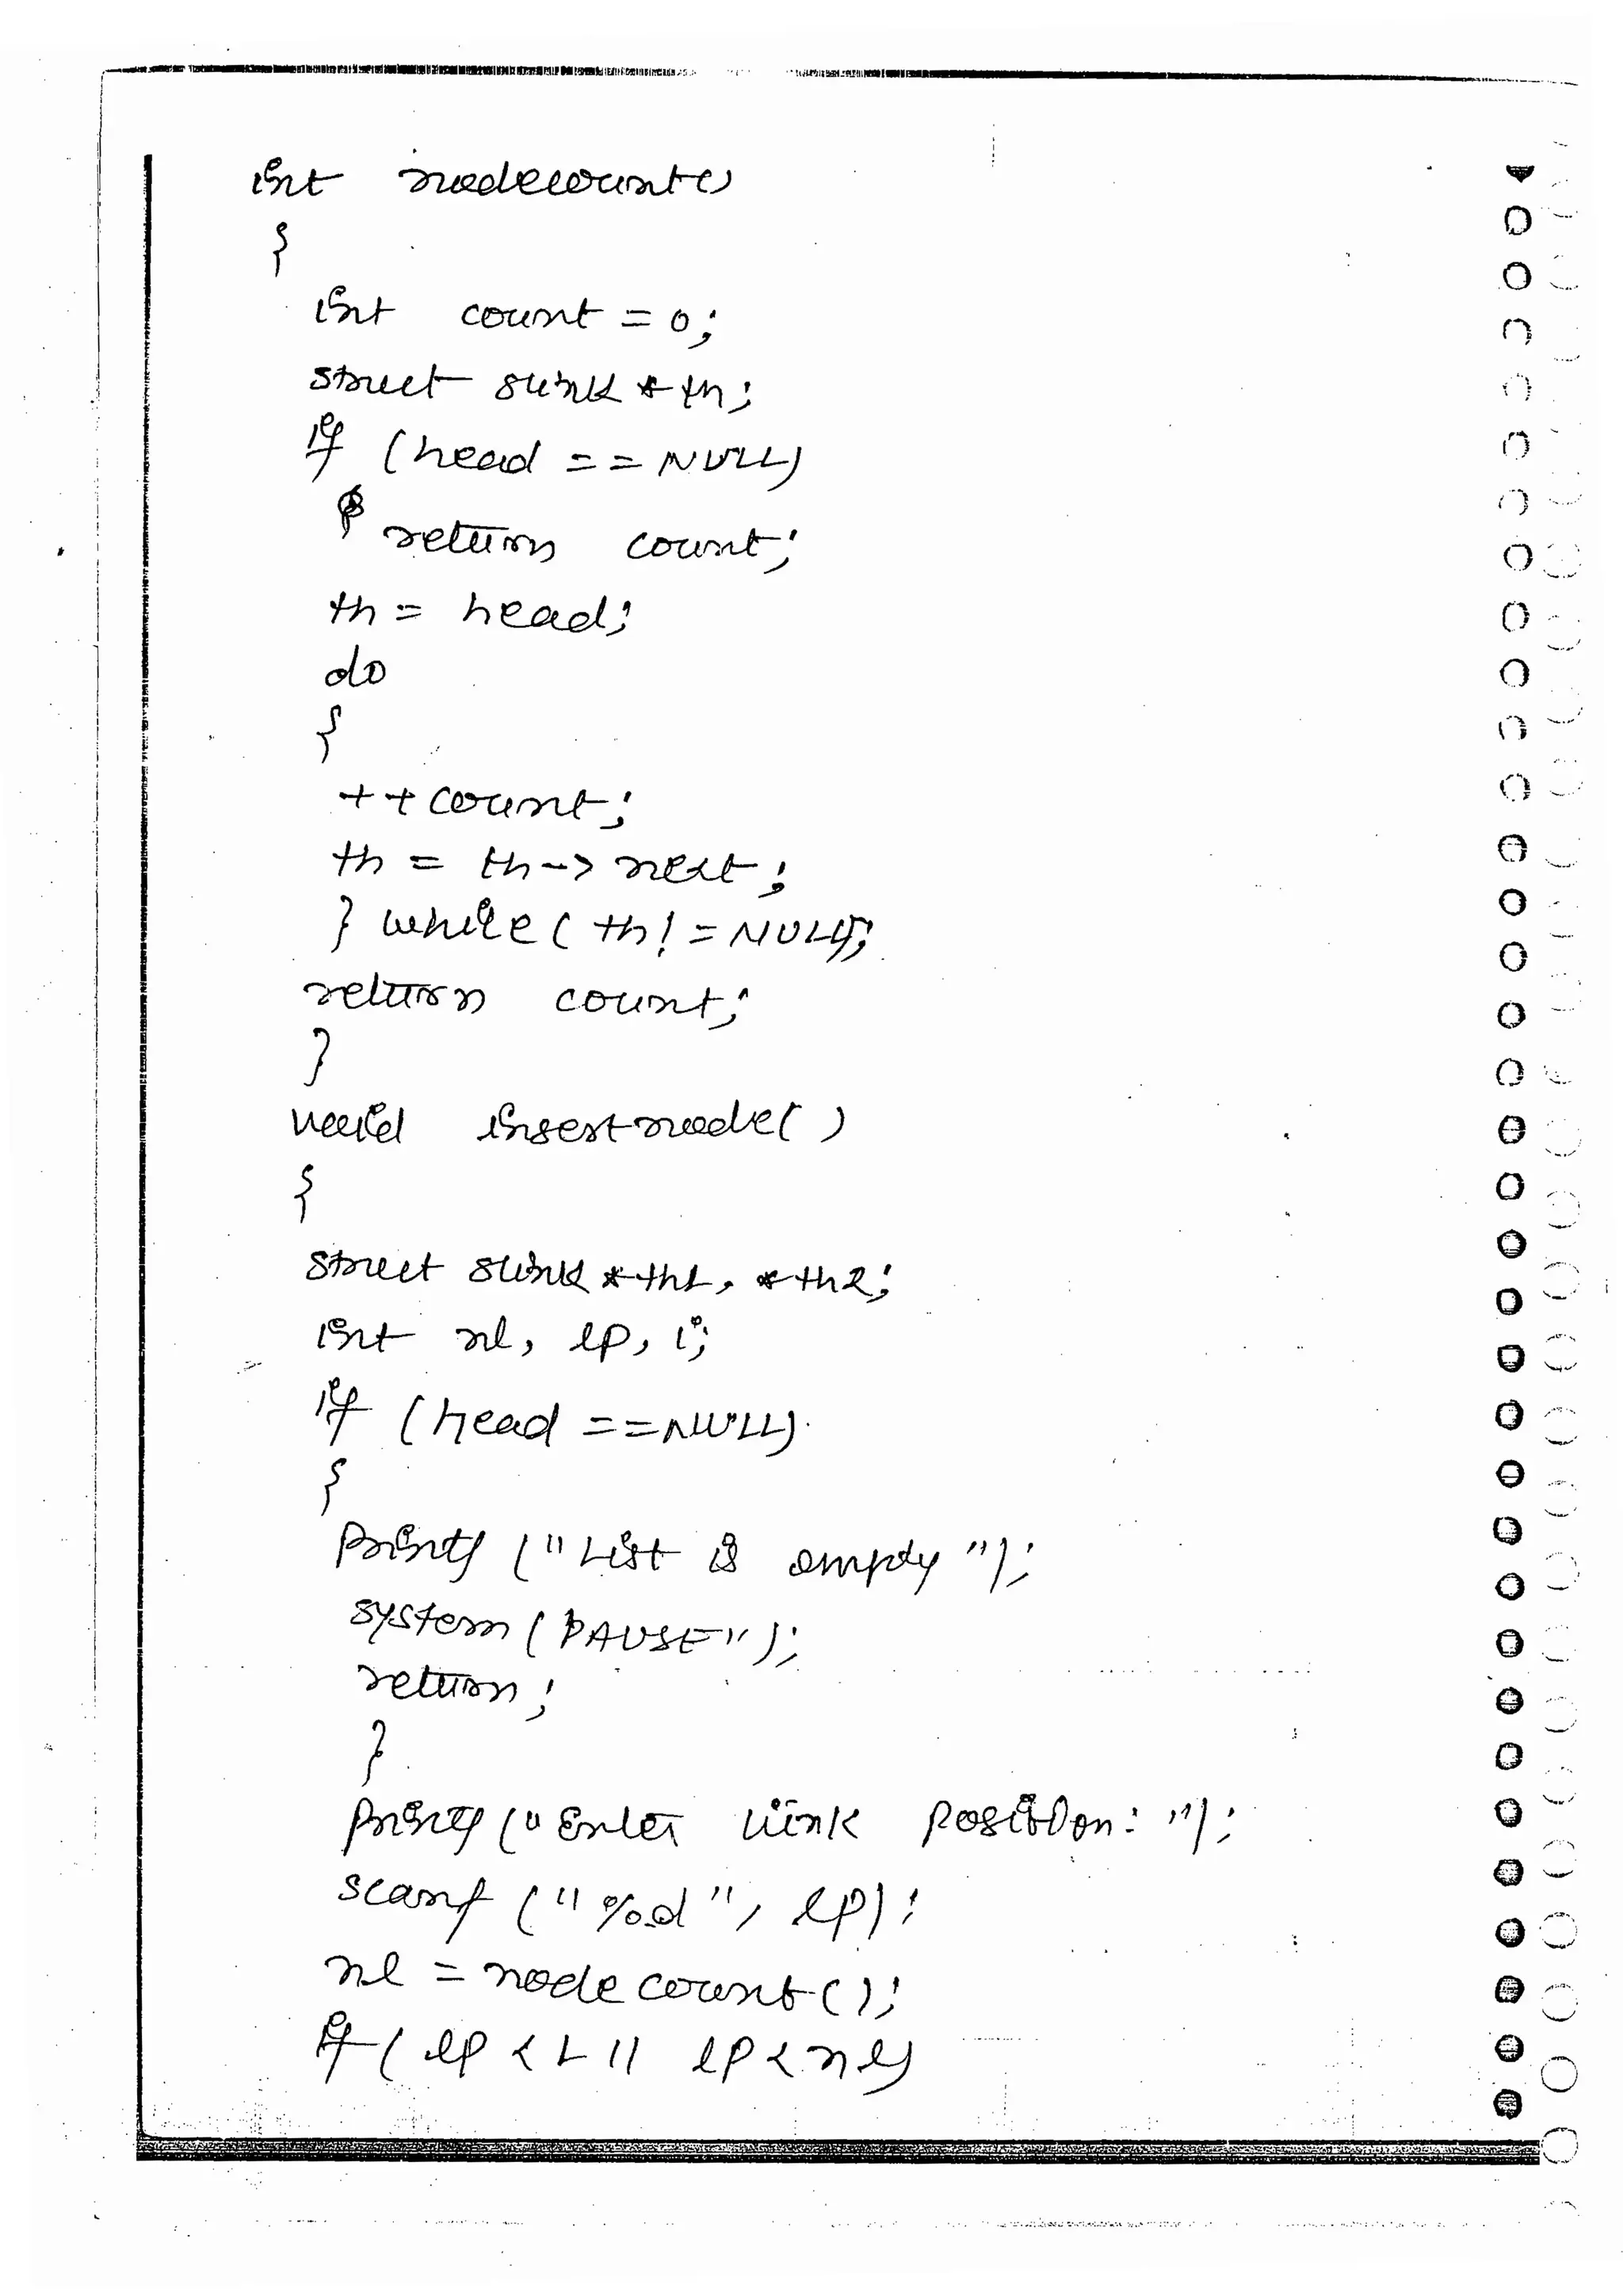 int nodecount()
{
int count = 0;
struct slink *th;
if (head == NULL)
return count;
th = head;
do
{
++count;
th = th->next;
} while( th! = NULL);
return count;
}
void insertnode( )
{
struct slink *th1, *th2;
int nl, lp, i;
if (head ==NULL)
{
printf ("List is empty ");
system (PAUSE");
return;
}
printf ("Enter link position: ");
scanf ("%d", lp);
nl = node count();
if( lp < 1 || lp < nl)